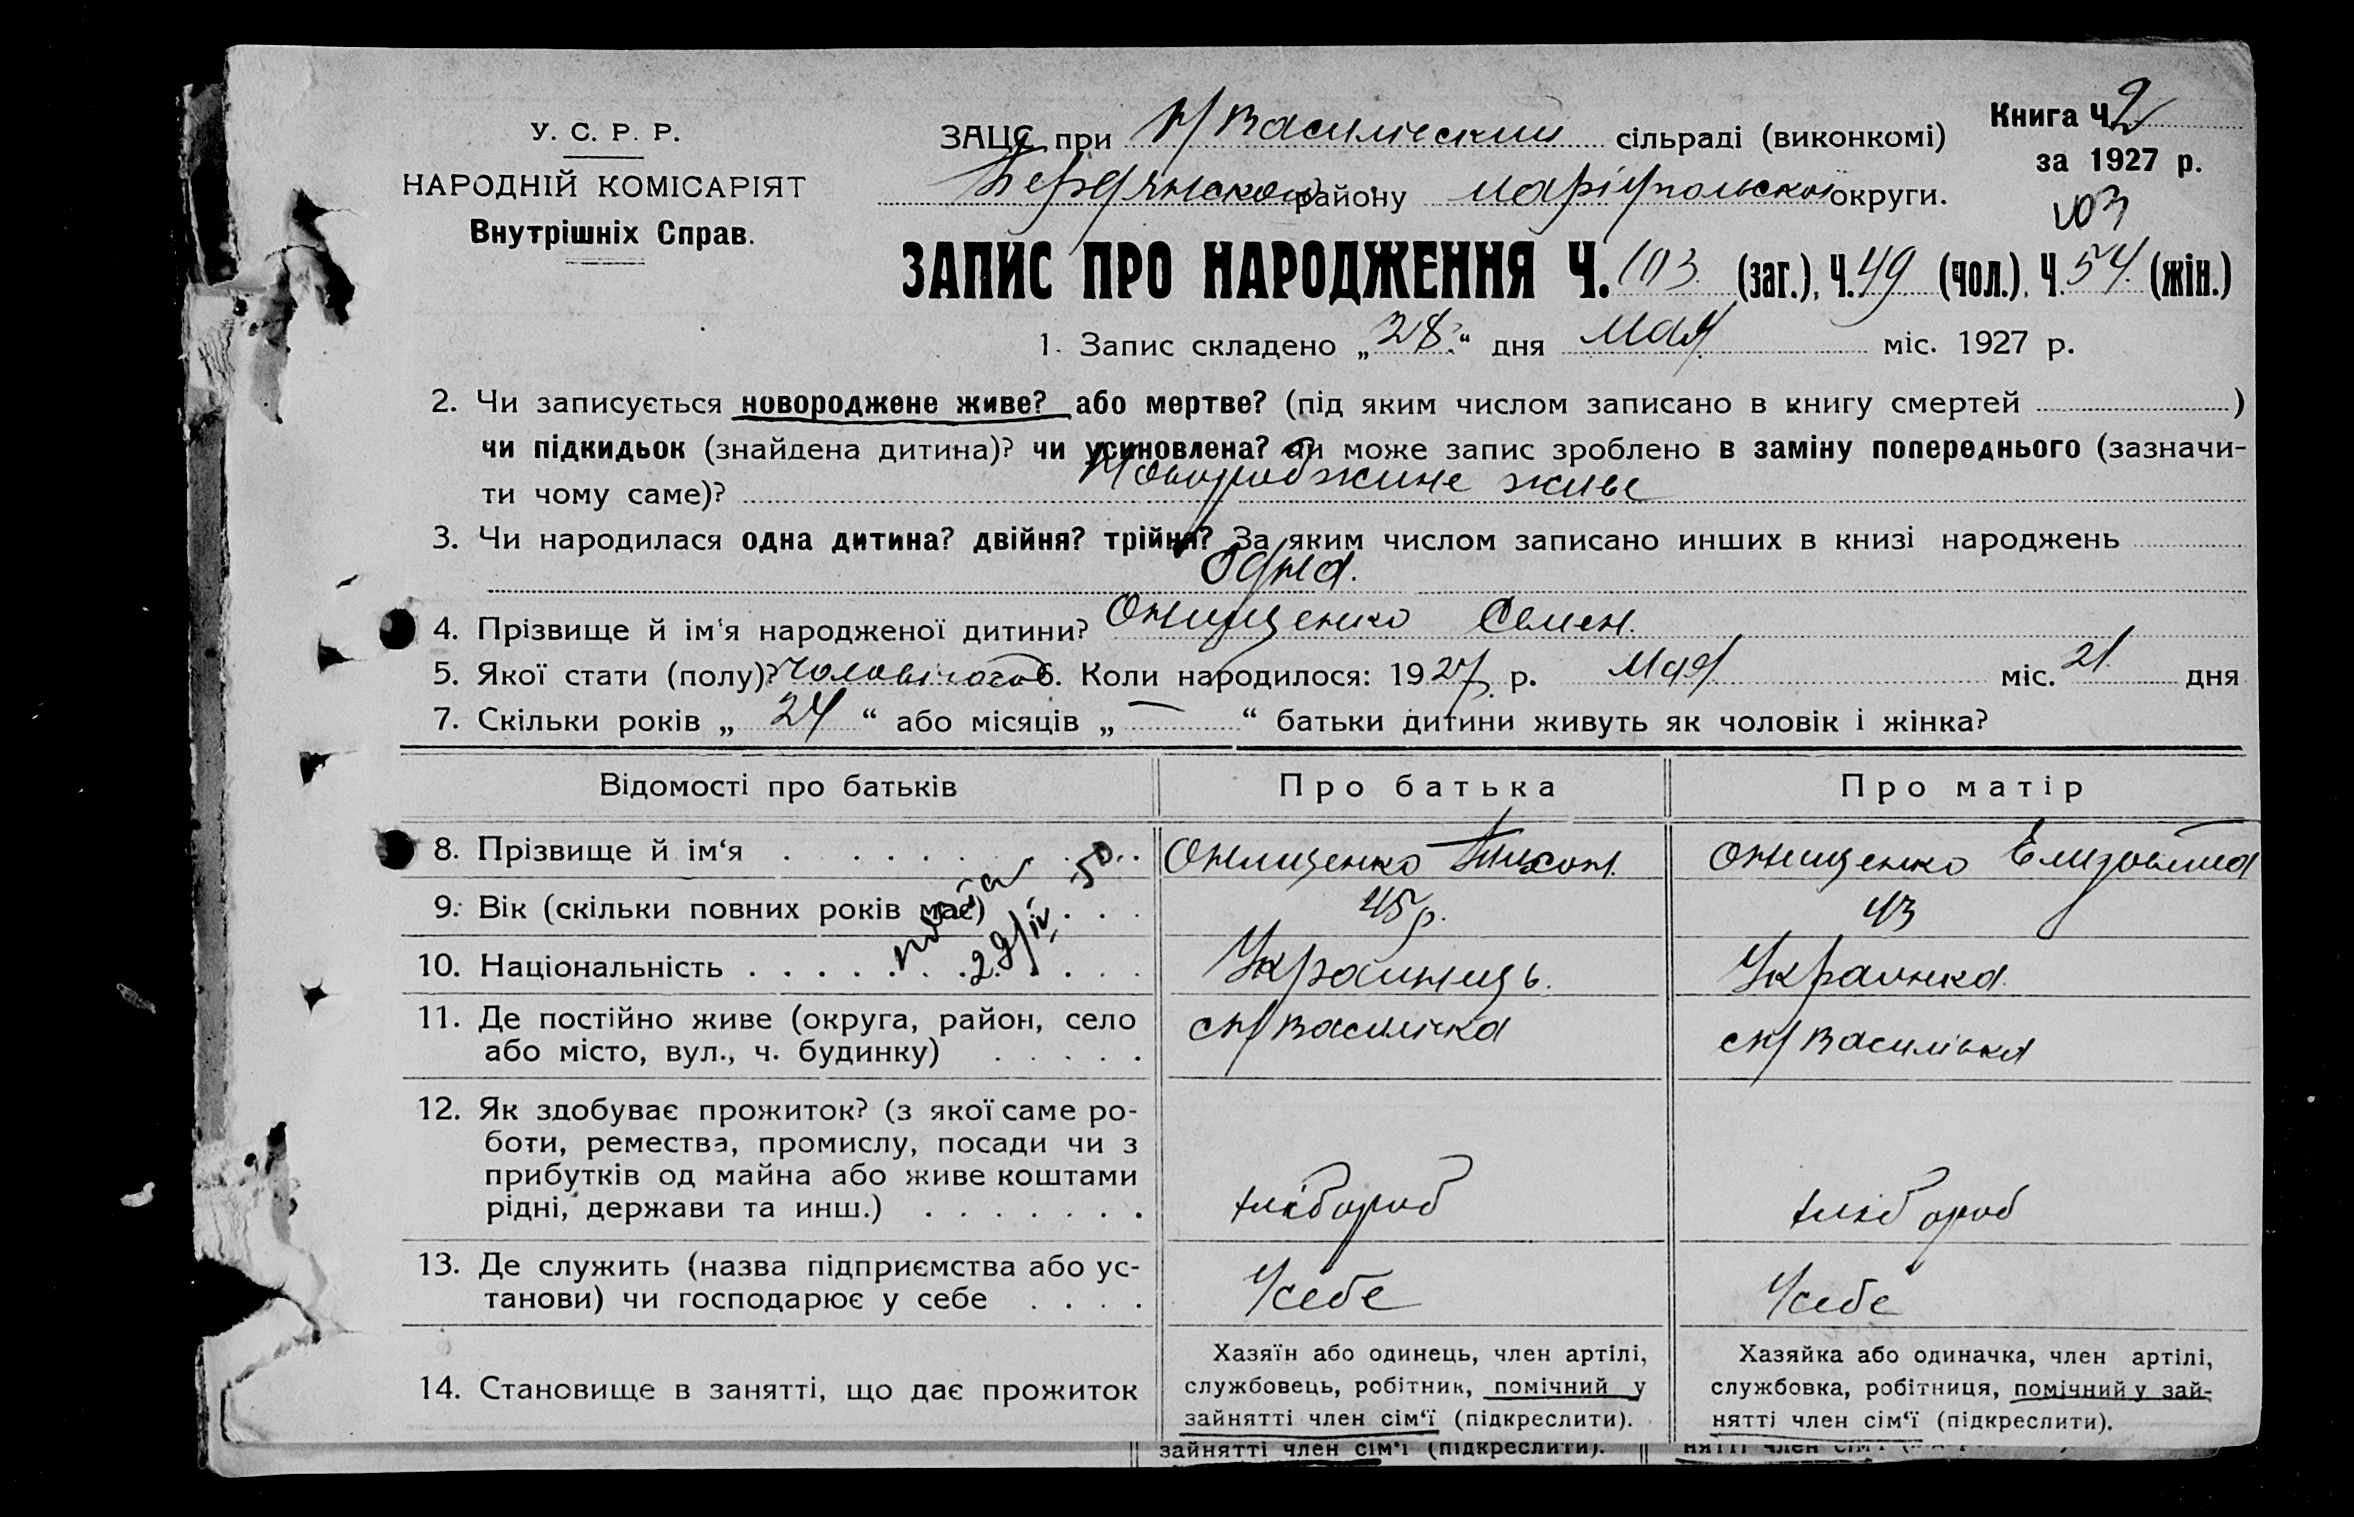 У. С. Р. Р.
НАРОДНІЙ КОМІСАРІЯТ
Внутрішніх Справ.
ЗАЦС при Н Василівский сільраді (виконкомі)
Бердянского району маріупольскої округи.
Книга Ч. 2
за 1927 р.
103
ЗАПИС ПРО НАРОДЖЕННЯ Ч. 103 (заг.), Ч. 49 (чол.). Ч. 54. (жін.)
1. Запис складено „28“ дня Мая міс. 1927 р.
2. Чи записується новороджене живе? або мертве? (під яким числом записано в книгу смертей )
чи підкидьок (знайдена дитина)? чи усиновлена? чи може запис зроблено в заміну попереднього (зазначи-
ти чому саме)? Новороджине живе
3. Чи народилася одна дитина? двійня? трійня? За яким числом записано инших в книзі народжень
Одна.
4. Прізвище й ім'я народженої дитини? Онищенко Семен.
5. Якої стати (полу)? 6. Коли народилося: 1927 р. Мая міс. 21 дня
7. Скільки років „ 24 “ або місяців „ — “ батьки дитини живуть як чоловік і жінка?
Відомості про батьків Про батька Про матір
8. Прізвище й ім‘я Онищенко Тихон. Онищенко Елизовета
9. Вік (скільки повних років має) 45 р. 43
10. Національність Украиниць. Украинка
29/IV 50
11. Де постійно живе (округа, район, село
або місто, вул., ч. будинку)
с Н Василівка с Н Василівка
12. Як здобуває прожиток? (з якої саме ро-
боти, ремества, промислу, посади чи з
прибутків од майна або живе коштами
рідні, держави та инш.)
хлібороб хлібороб
13. Де служить (назва підприємства або ус-
танови) чи господарює у себе
У себе У себе
14. Становище в занятті, що дає прожиток
Хазяїн або одинець, член артілі,
службовець, робітник, помічний у
зайнятті член сім‘ї (підкреслити).
Хазяйка або одиначка, член артілі,
службовка, робітниця, помічний у зай-
нятті член сім‘ї (підкреслити).
зайнятті член сім‘ї (підкреслити).